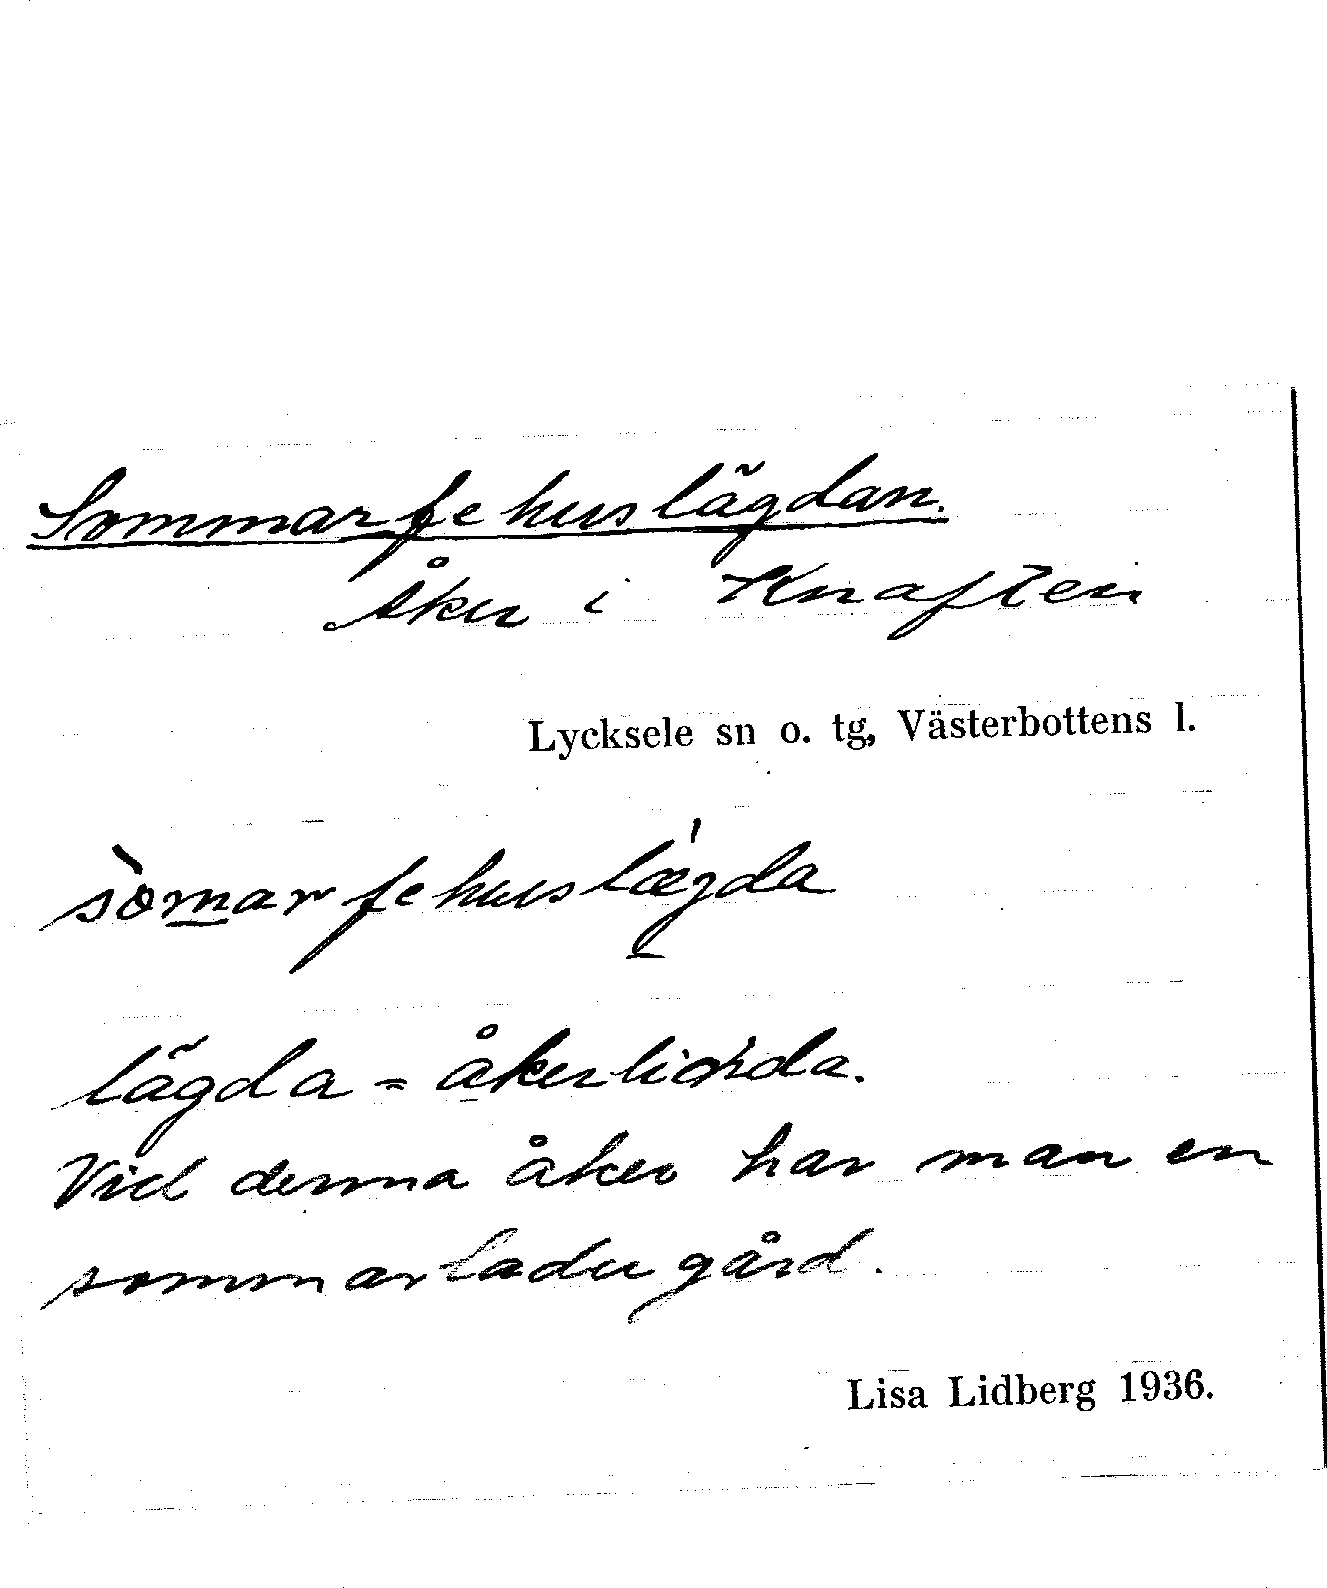 Sommarfehuslägdan.
Åker i Knaften
Lycksele sn o. tg, Västerbottens l.
sòmarfehuslægda
lägda =
Vid denna åker har man en
sommarladugård.
Lisa Lidberg 1936.